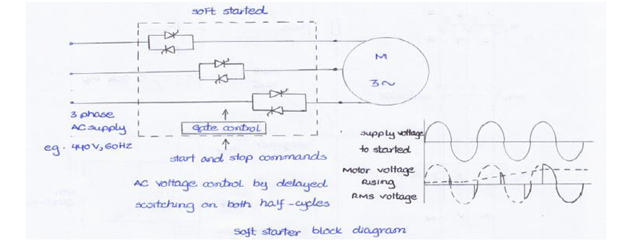 soft started
M
3~
3 phase
AC supply
eg. 440V, 60Hz
Gate control
start and stop commands
AC voltage control by delayed
switching on both half-cycles
supply voltage
to started
Motor voltage
Rising
RMS voltage
Soft starter block diagram